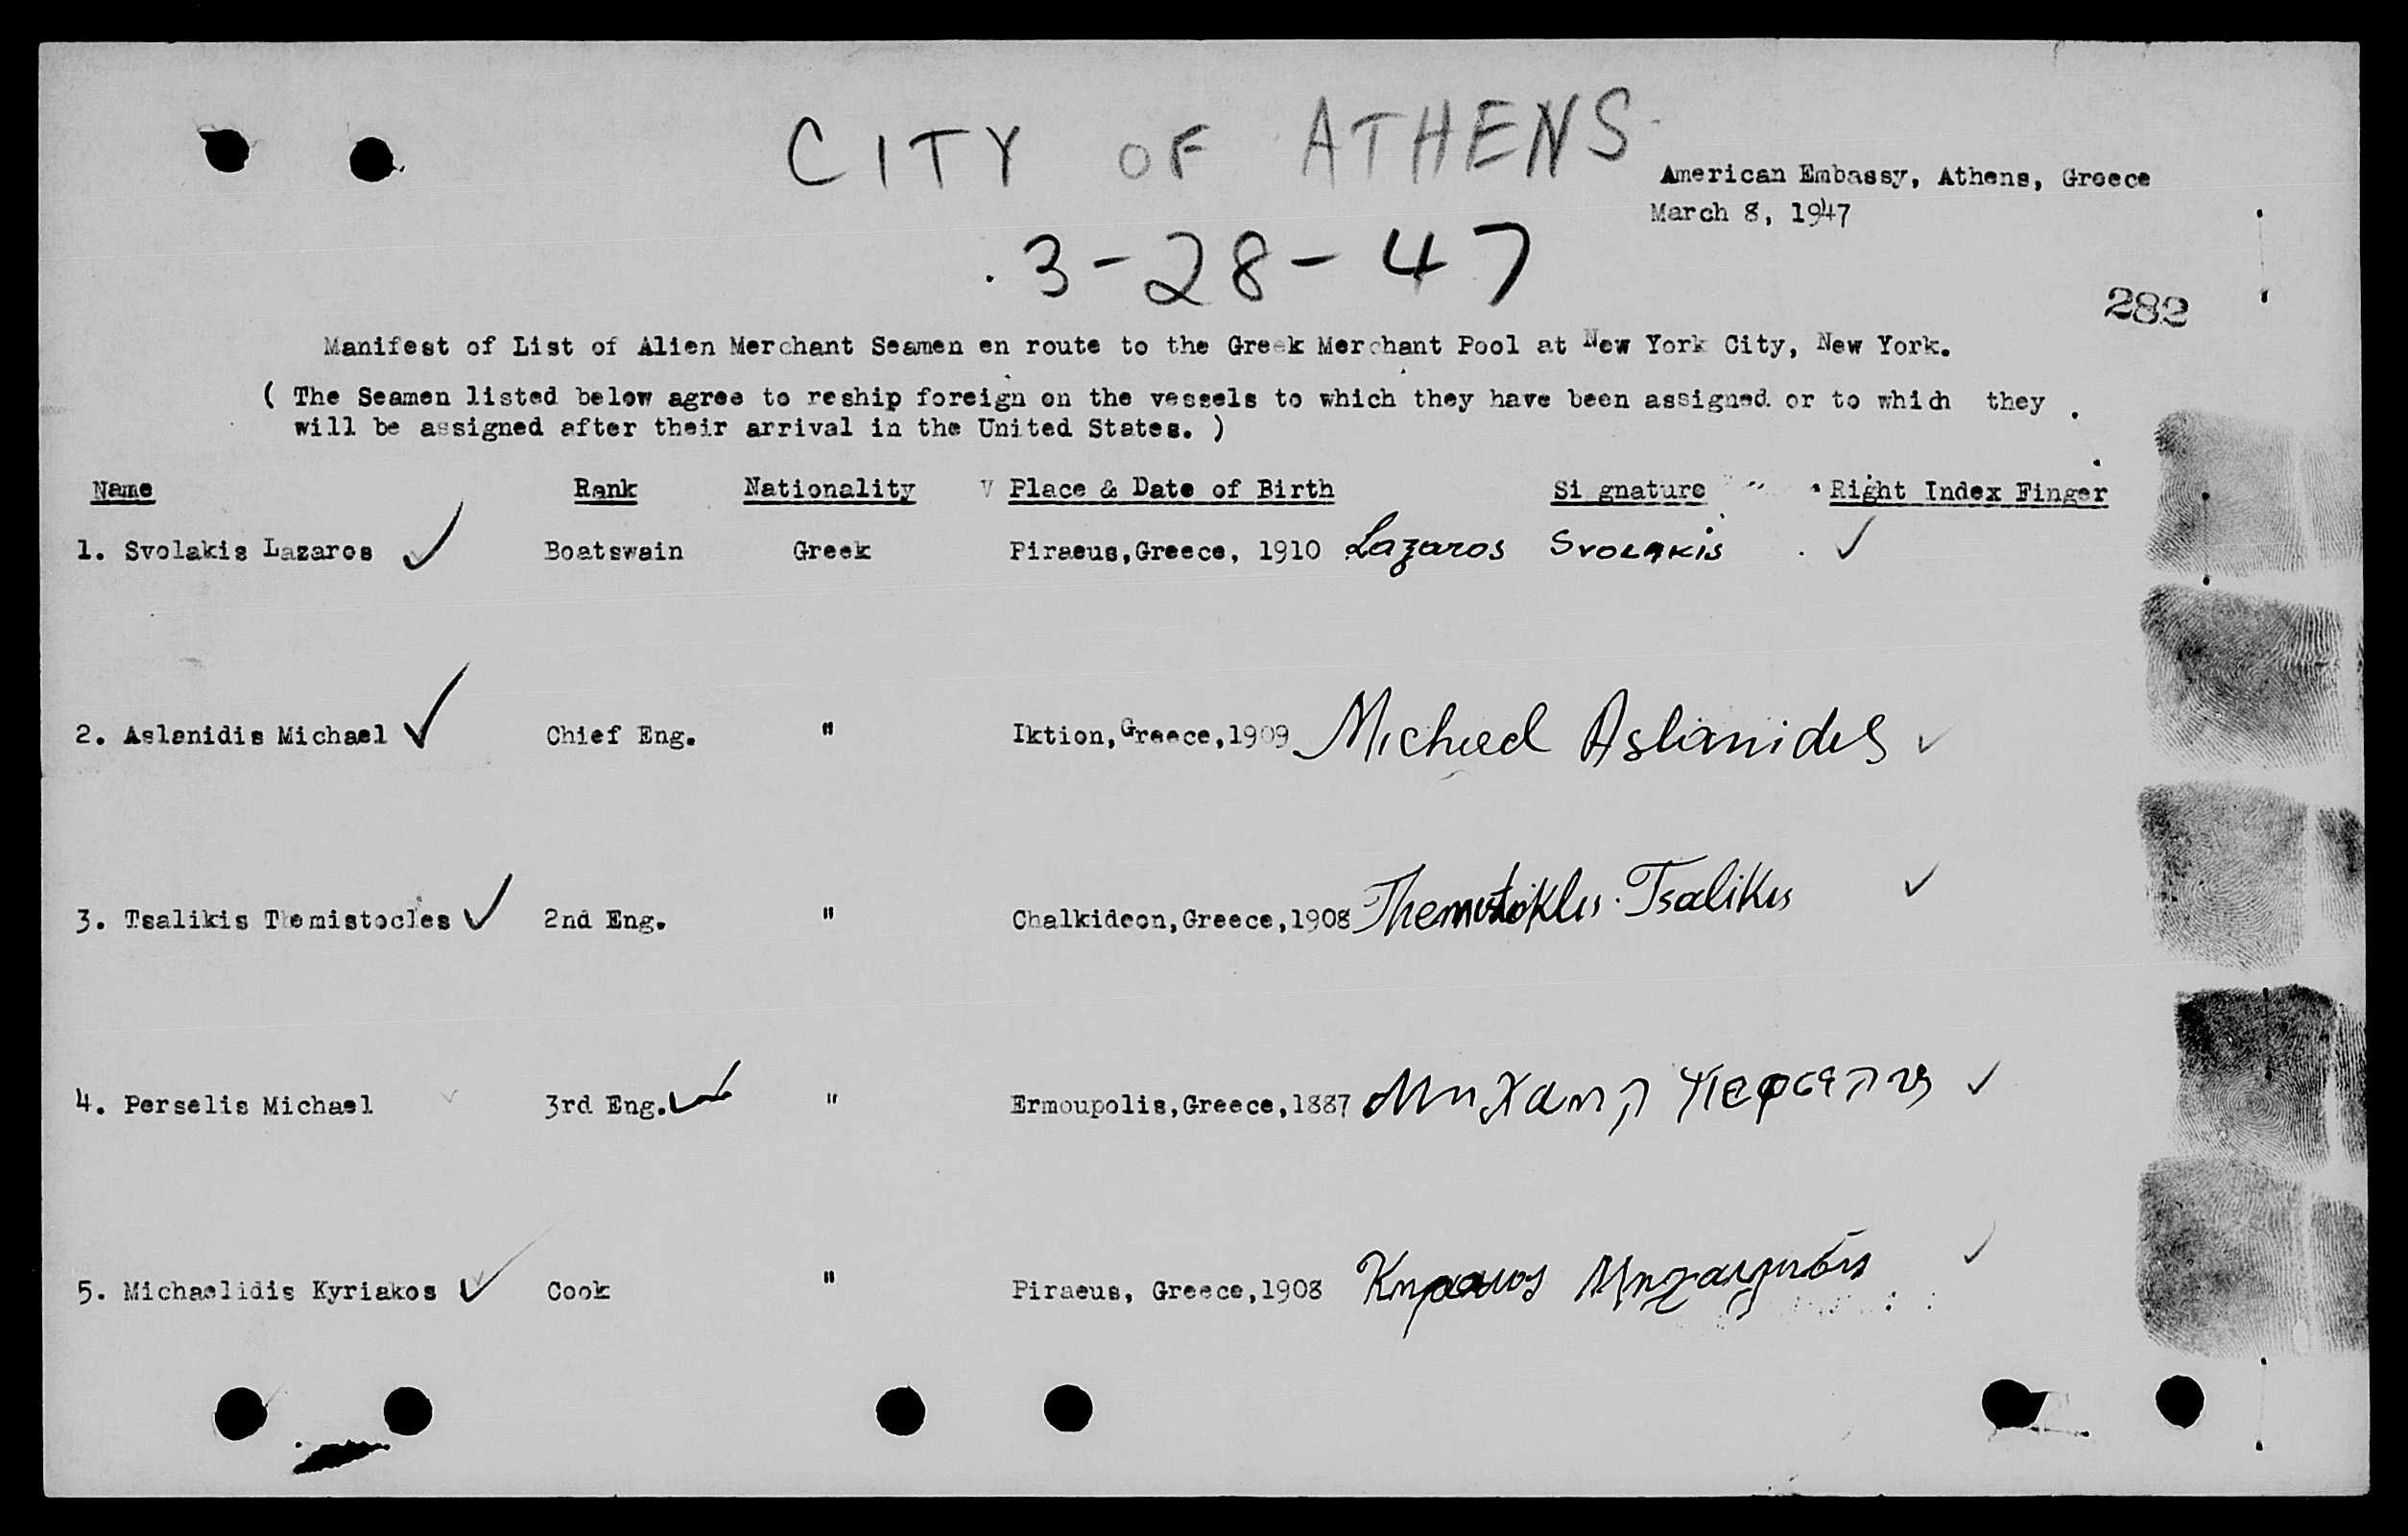 CITY OF ATHENS
American Embassy, Athens, Greece
March 8, 1947
3-28-47
282
Manifest of List of Alien Merchant Seamen en route to the Greek Merchant Pool at New York City, New York.
( The Seamen listed below agree to reship foreign on the vessels to which they have been assigned or to which they
will be assigned after their arrival in the United States. )
Name Rank Nationality Place & Date of Birth Signature Right Index Finger
1. Svolakis Lazaros Boatswain Greek Piraeus,Greece, 1910 Lazaros Svolakis
2. Aslanidis Michael Chief Eng. " Iktion,Greece,1909 Michael Aslanides
3. Tsalikis Themistocles 2nd Eng. " Chalkideon,Greece,1908 Themistoklis Tsalikis
4. Perselis Michael 3rd Eng. " Ermoupolis,Greece,1887 Μηχαηλ Περσελης
5. Michaelidis Kyriakos Cook " Piraeus, Greece,1908 Μηχαηλιδης